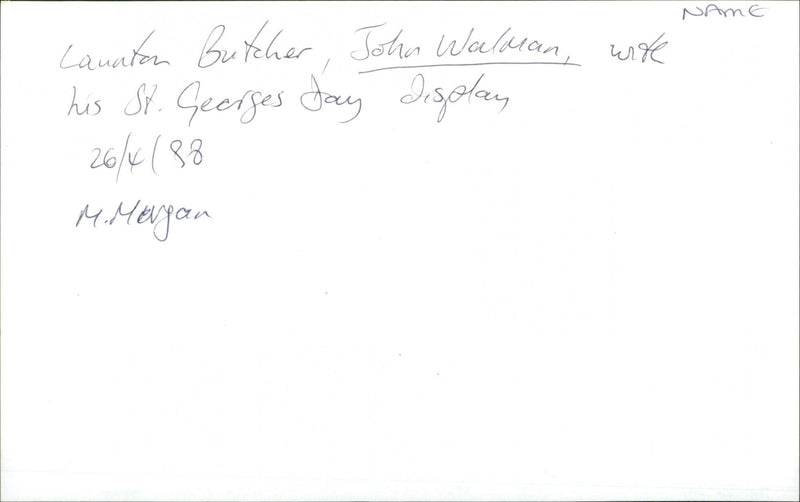 NAME
Launton Butcher, John Walman, with
his St. Georges Day display
26/4/88
M. Morgan